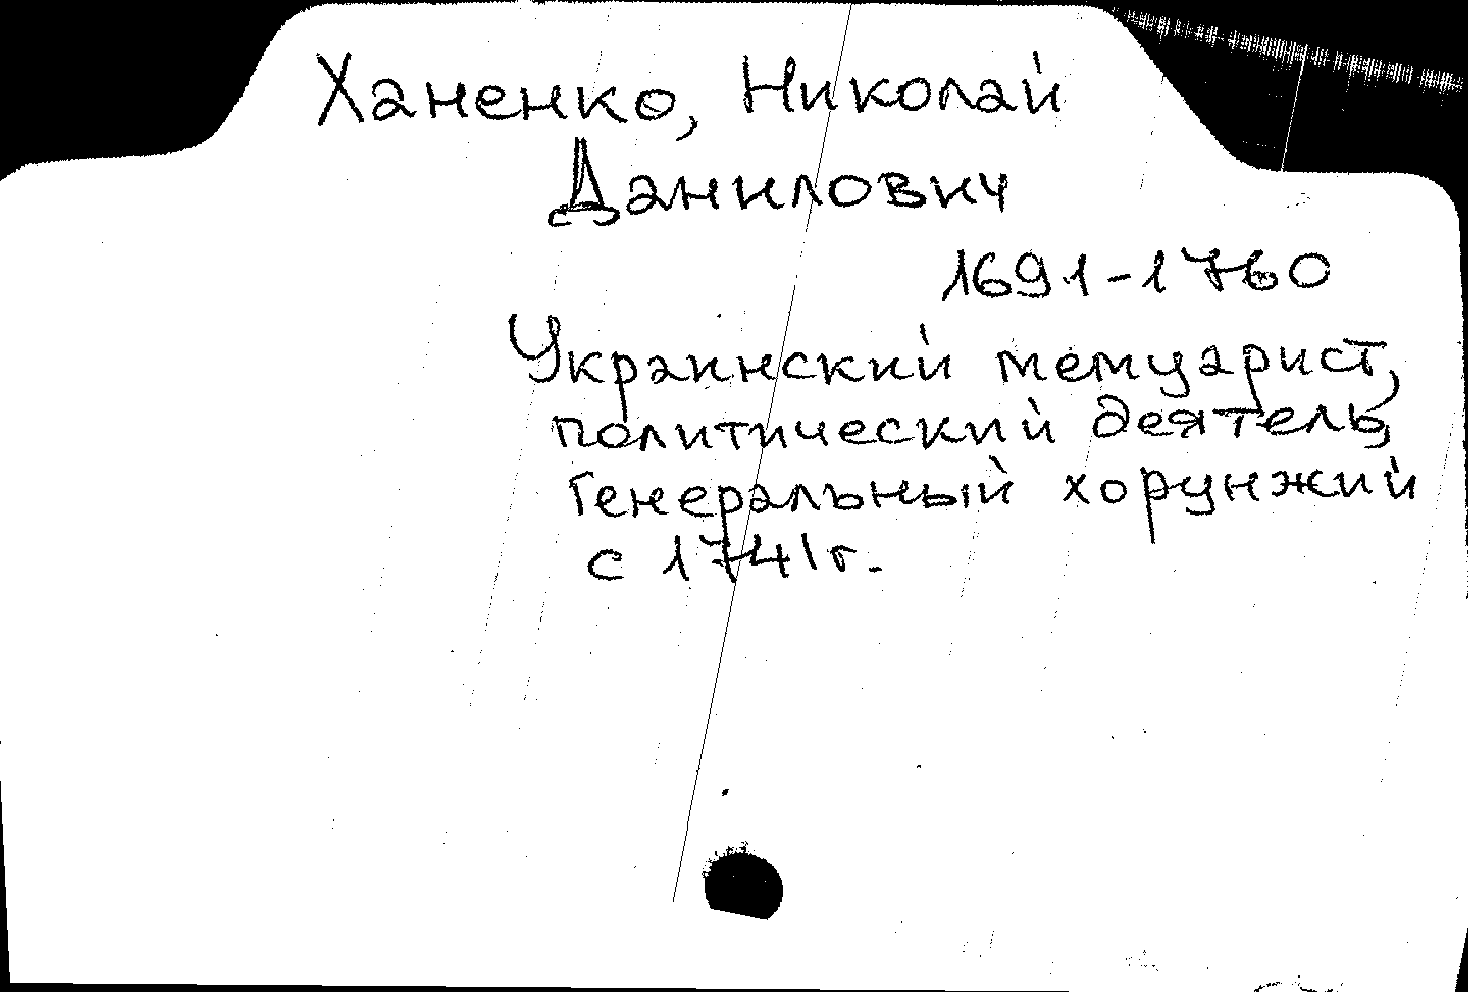 Ханенко, Николай
Данилович
1691-1760
Украинский мемуарист,
политический деятель,
генеральный хорунжий
с 1741г.